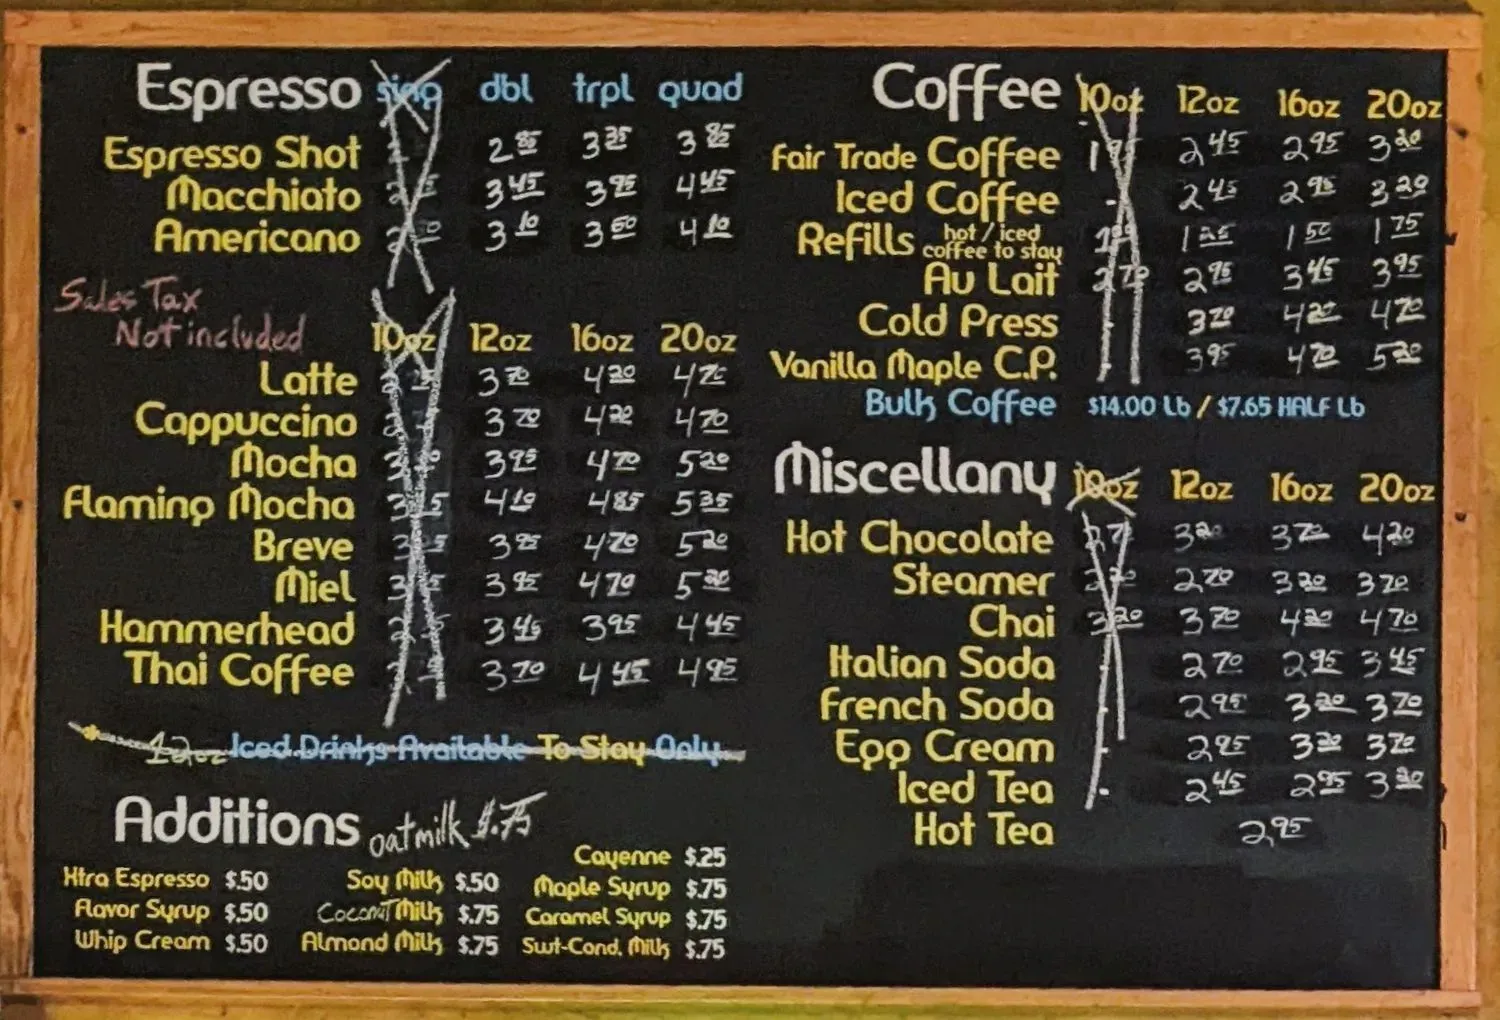 Espresso sing dbl trpl quad
Espresso Shot 2 85 3 35 3 85
Macchiato 3 45 3 95 4 45
Americano 3 10 3 60 4 10
Sales Tax
Not included
10oz 12oz 16oz 20oz
Latte 3 70 4 20 4 70
Cappuccino 3 70 4 20 4 70
Mocha 3 95 4 70 5 20
Flaming Mocha 4 10 4 85 5 35
Breve 3 95 4 70 5 20
Miel 3 95 4 70 5 20
Hammerhead 3 45 3 95 4 45
Thai Coffee 3 70 4 45 4 95
12oz Iced Drinks Available To Stay Only
Additions oatmilk $.75
Xtra Espresso $.50
Flavor Syrup $.50
Whip Cream $.50
Soy Milk $.50
Coconut Milk $.75
Almond Milk $.75
Cayenne $.25
Maple Syrup $.75
Caramel Syrup $.75
Swt-Cond. Milk $.75
Coffee 10oz 12oz 16oz 20oz
Fair Trade Coffee 1 95 2 45 2 95 3 20
Iced Coffee - 2 45 2 95 3 20
Refills hot / iced coffee to stay 1 25 1 50 1 75
Au Lait 2 70 2 95 3 45 3 95
Cold Press - 3 70 4 20 4 70
Vanilla Maple C.P. - 3 95 4 70 5 20
Bulk Coffee $14.00 Lb / $7.65 HALF Lb
Miscellany 10oz 12oz 16oz 20oz
Hot Chocolate 3 20 3 70 4 20
Steamer 2 70 3 20 3 70
Chai 3 20 3 70 4 20 4 70
Italian Soda - 2 70 2 95 3 45
French Soda - 2 95 3 20 3 70
Egg Cream - 2 95 3 20 3 70
Iced Tea - 2 45 2 95 3 20
Hot Tea 2 95